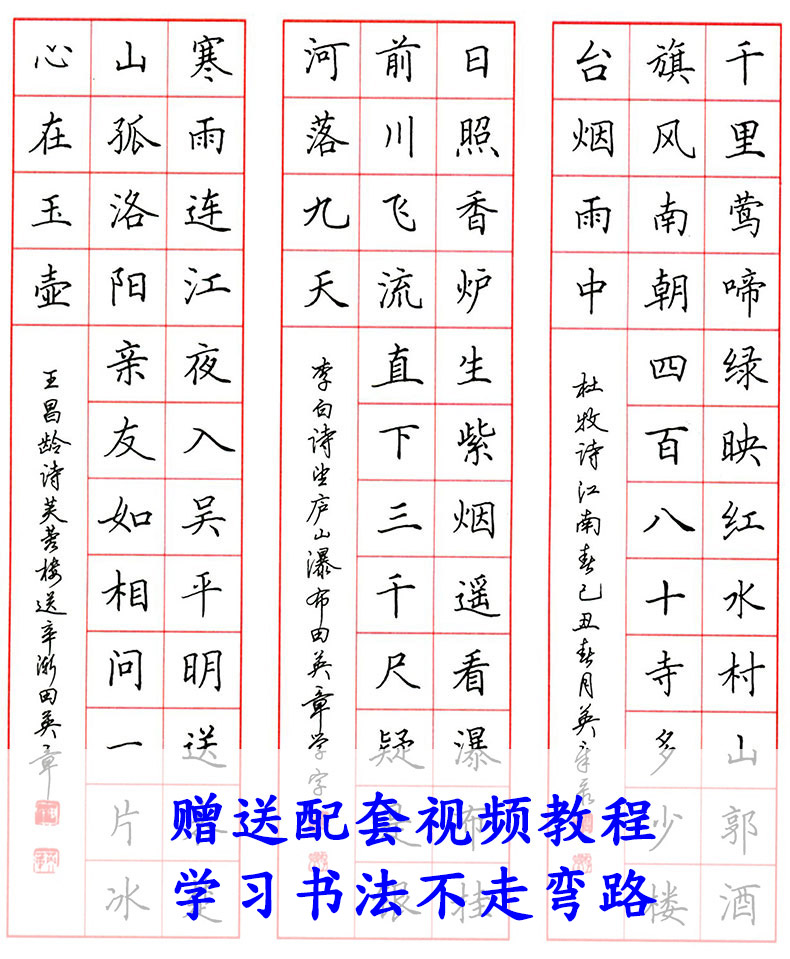 千里莺啼绿映红水村山郭酒
旗风南朝四百八十寺多少楼
台烟雨中
杜牧诗江南春己丑春月英章录
日照香炉生紫烟遥看瀑布挂
前川飞流直下三千尺疑是银
河落九天
李白诗望庐山瀑布田英章学字
寒雨连江夜入吴平明送
山孤洛阳亲友如相问一片冰
心在玉壶
王昌龄诗芙蓉楼送辛渐田英章
赠送配套视频教程
学习书法不走弯路